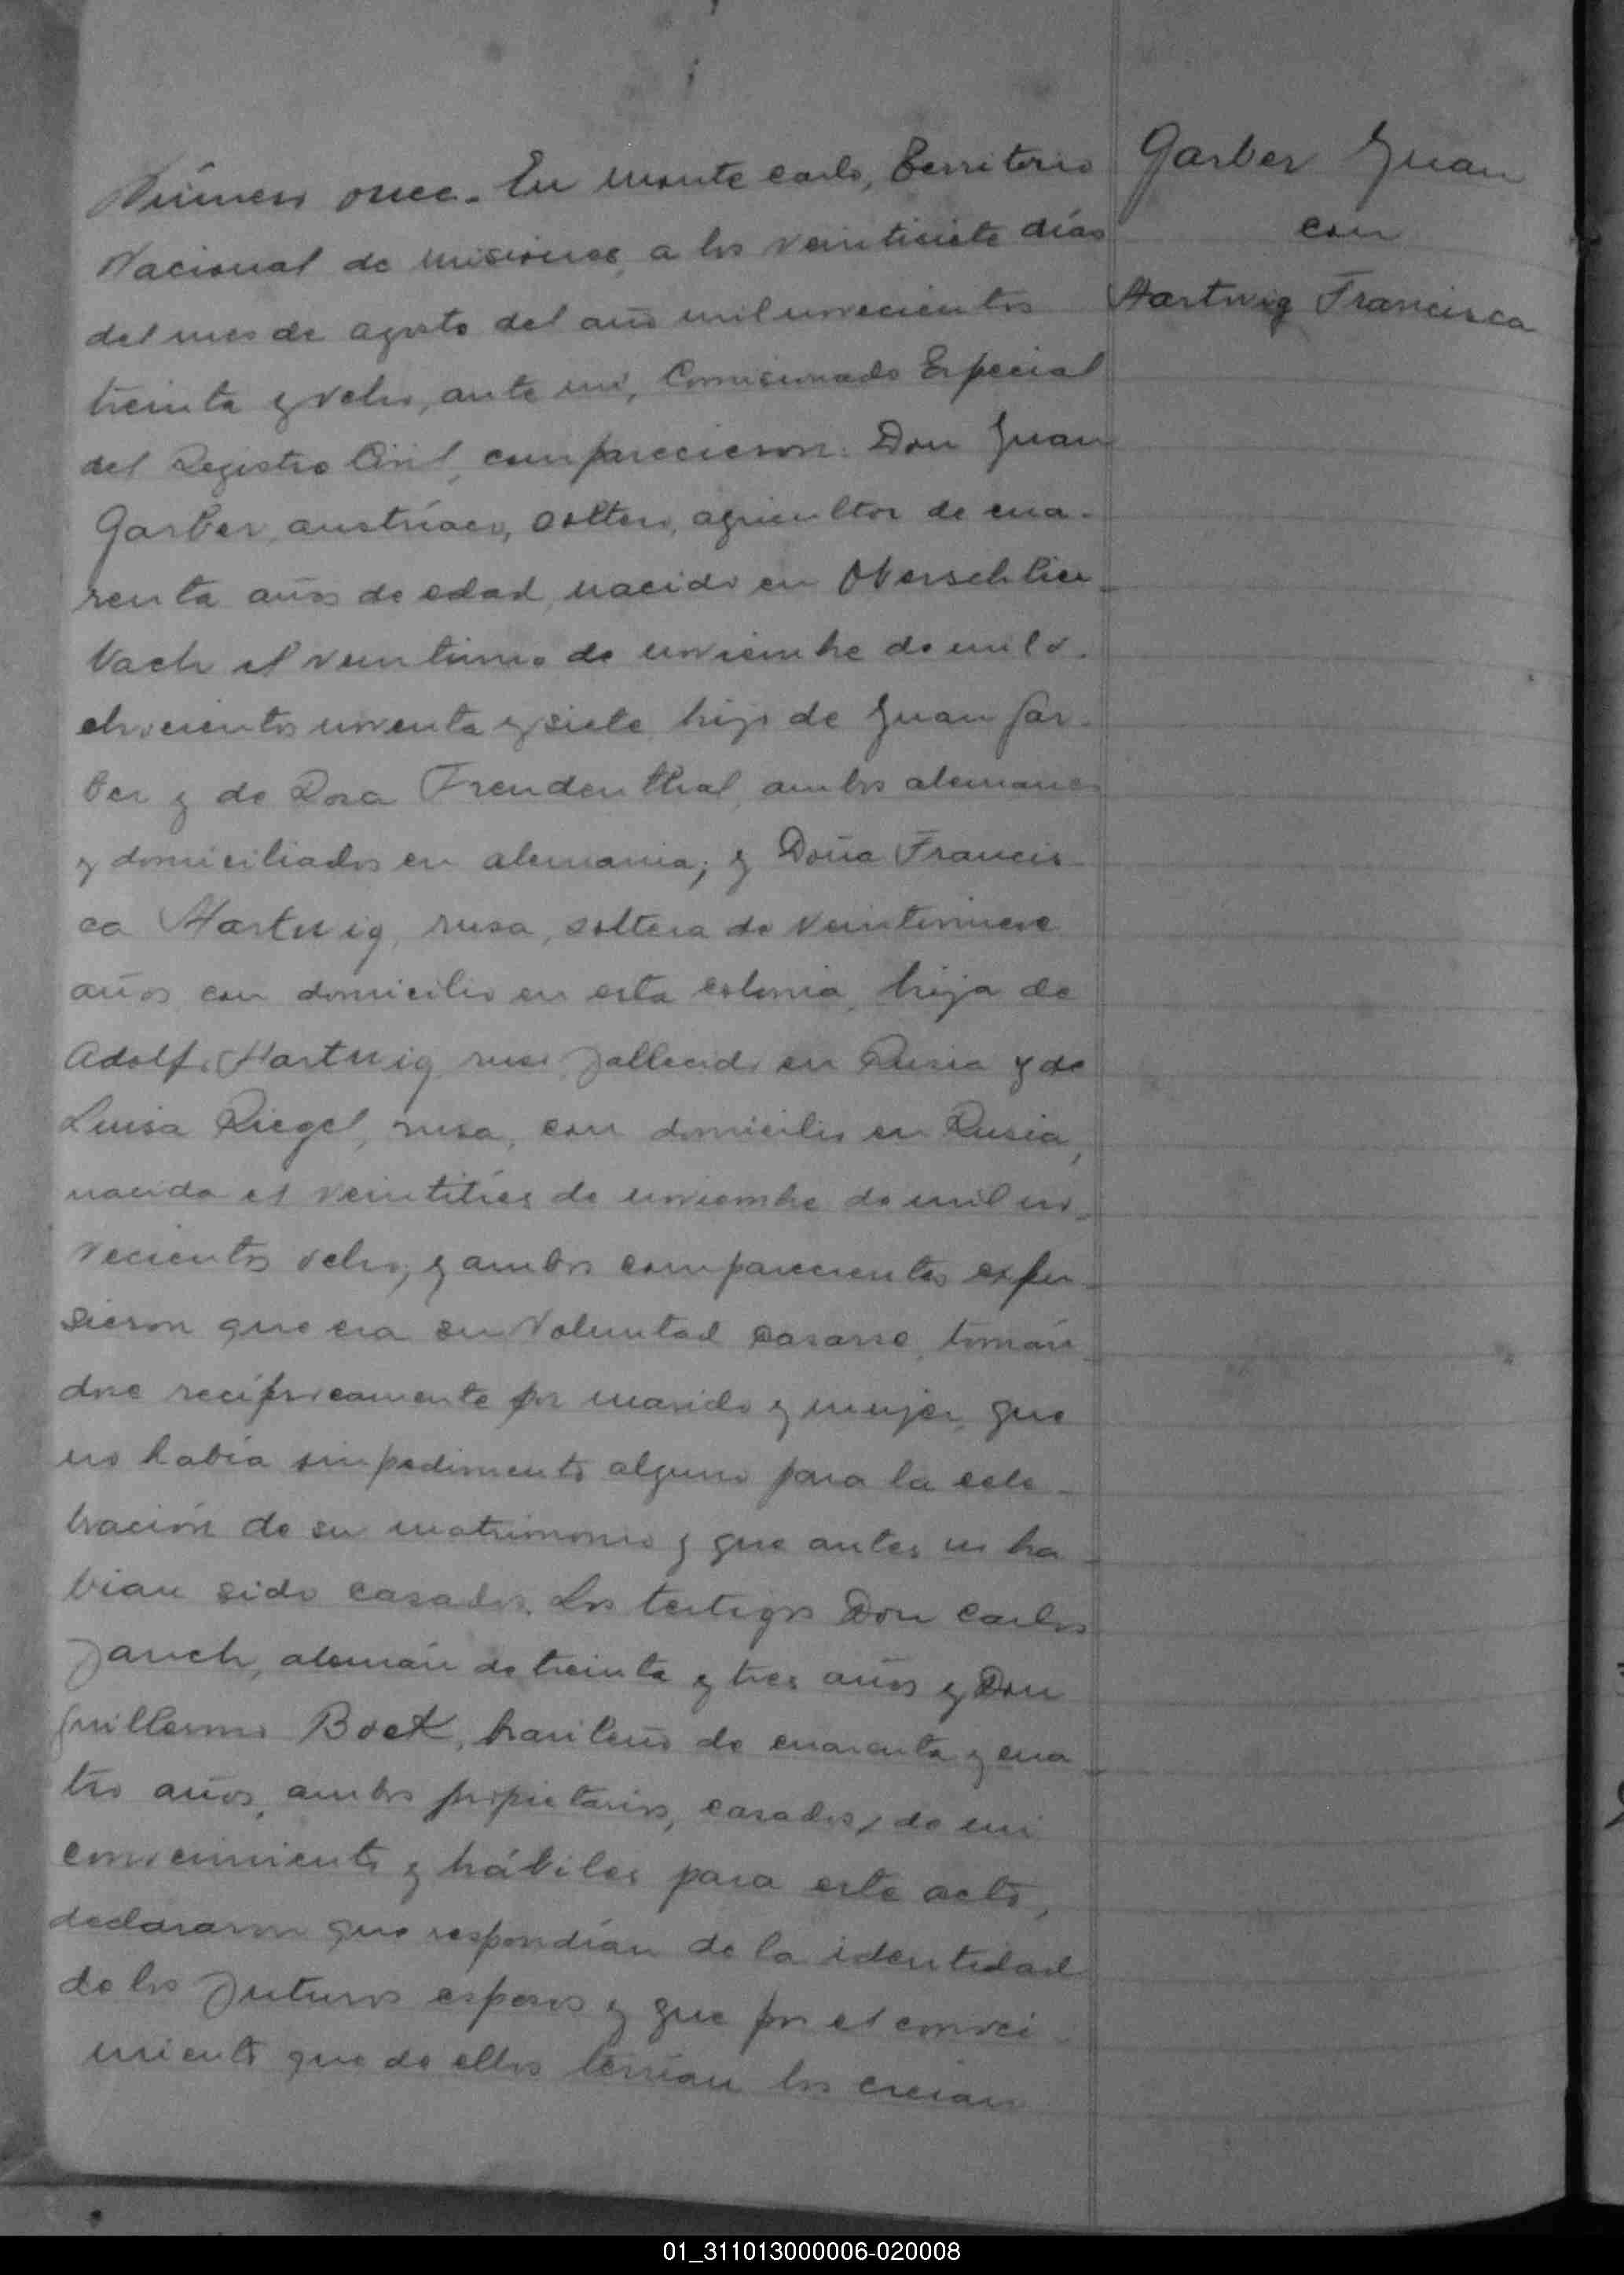 Número once. En monte carlo, Territorio
Nacional de misiones, a los veintisiete días
del mes de agosto del año mil novecientos
treinta y ocho, ante mi, Comisionado Especial
del Registro Civil, comparecieron: Don Juan
Garber, austríaco, soltero, agricultor de cua-
renta años de edad, nacido en Oberschlier-
bach el veintiuno de noviembre de mil o-
chocientos noventa y siete, hijo de Juan Gar-
ber y de Rosa Freudenthal, ambos alemanes
y domiciliados en alemania; y Doña Francis-
ca Hartwig, rusa, soltera de veintinueve
años, con domicilio en esta colonia, hija de
Adolfo Hartwig, ruso, fallecido en Rusia y de
Luisa Riegel, rusa, con domicilio en Rusia,
nacida el veintitrés de noviembre de mil no-
vecientos ocho; y ambos comparecientes expu-
sieron que era su voluntad casarse, tomán-
dose recíprocamente por marido y mujer, que
no había impedimento alguno para la cele-
bración de su matrimonio y que antes no ha-
bían sido casados. Los testigos Don Carlos
Jauch, alemán de treinta y tres años y Don
Guillermo Bock, brasileño de cuarenta y cua-
tro años, ambos propietarios, casados, de mi
conocimiento y hábiles para este acto,
declararon que respondían de la identidad
de los futuros esposos y que por el conoci-
miento que de ellos tenían los creían
Garber Juan
con
Hartwig Francisca
01_311013000006-020008